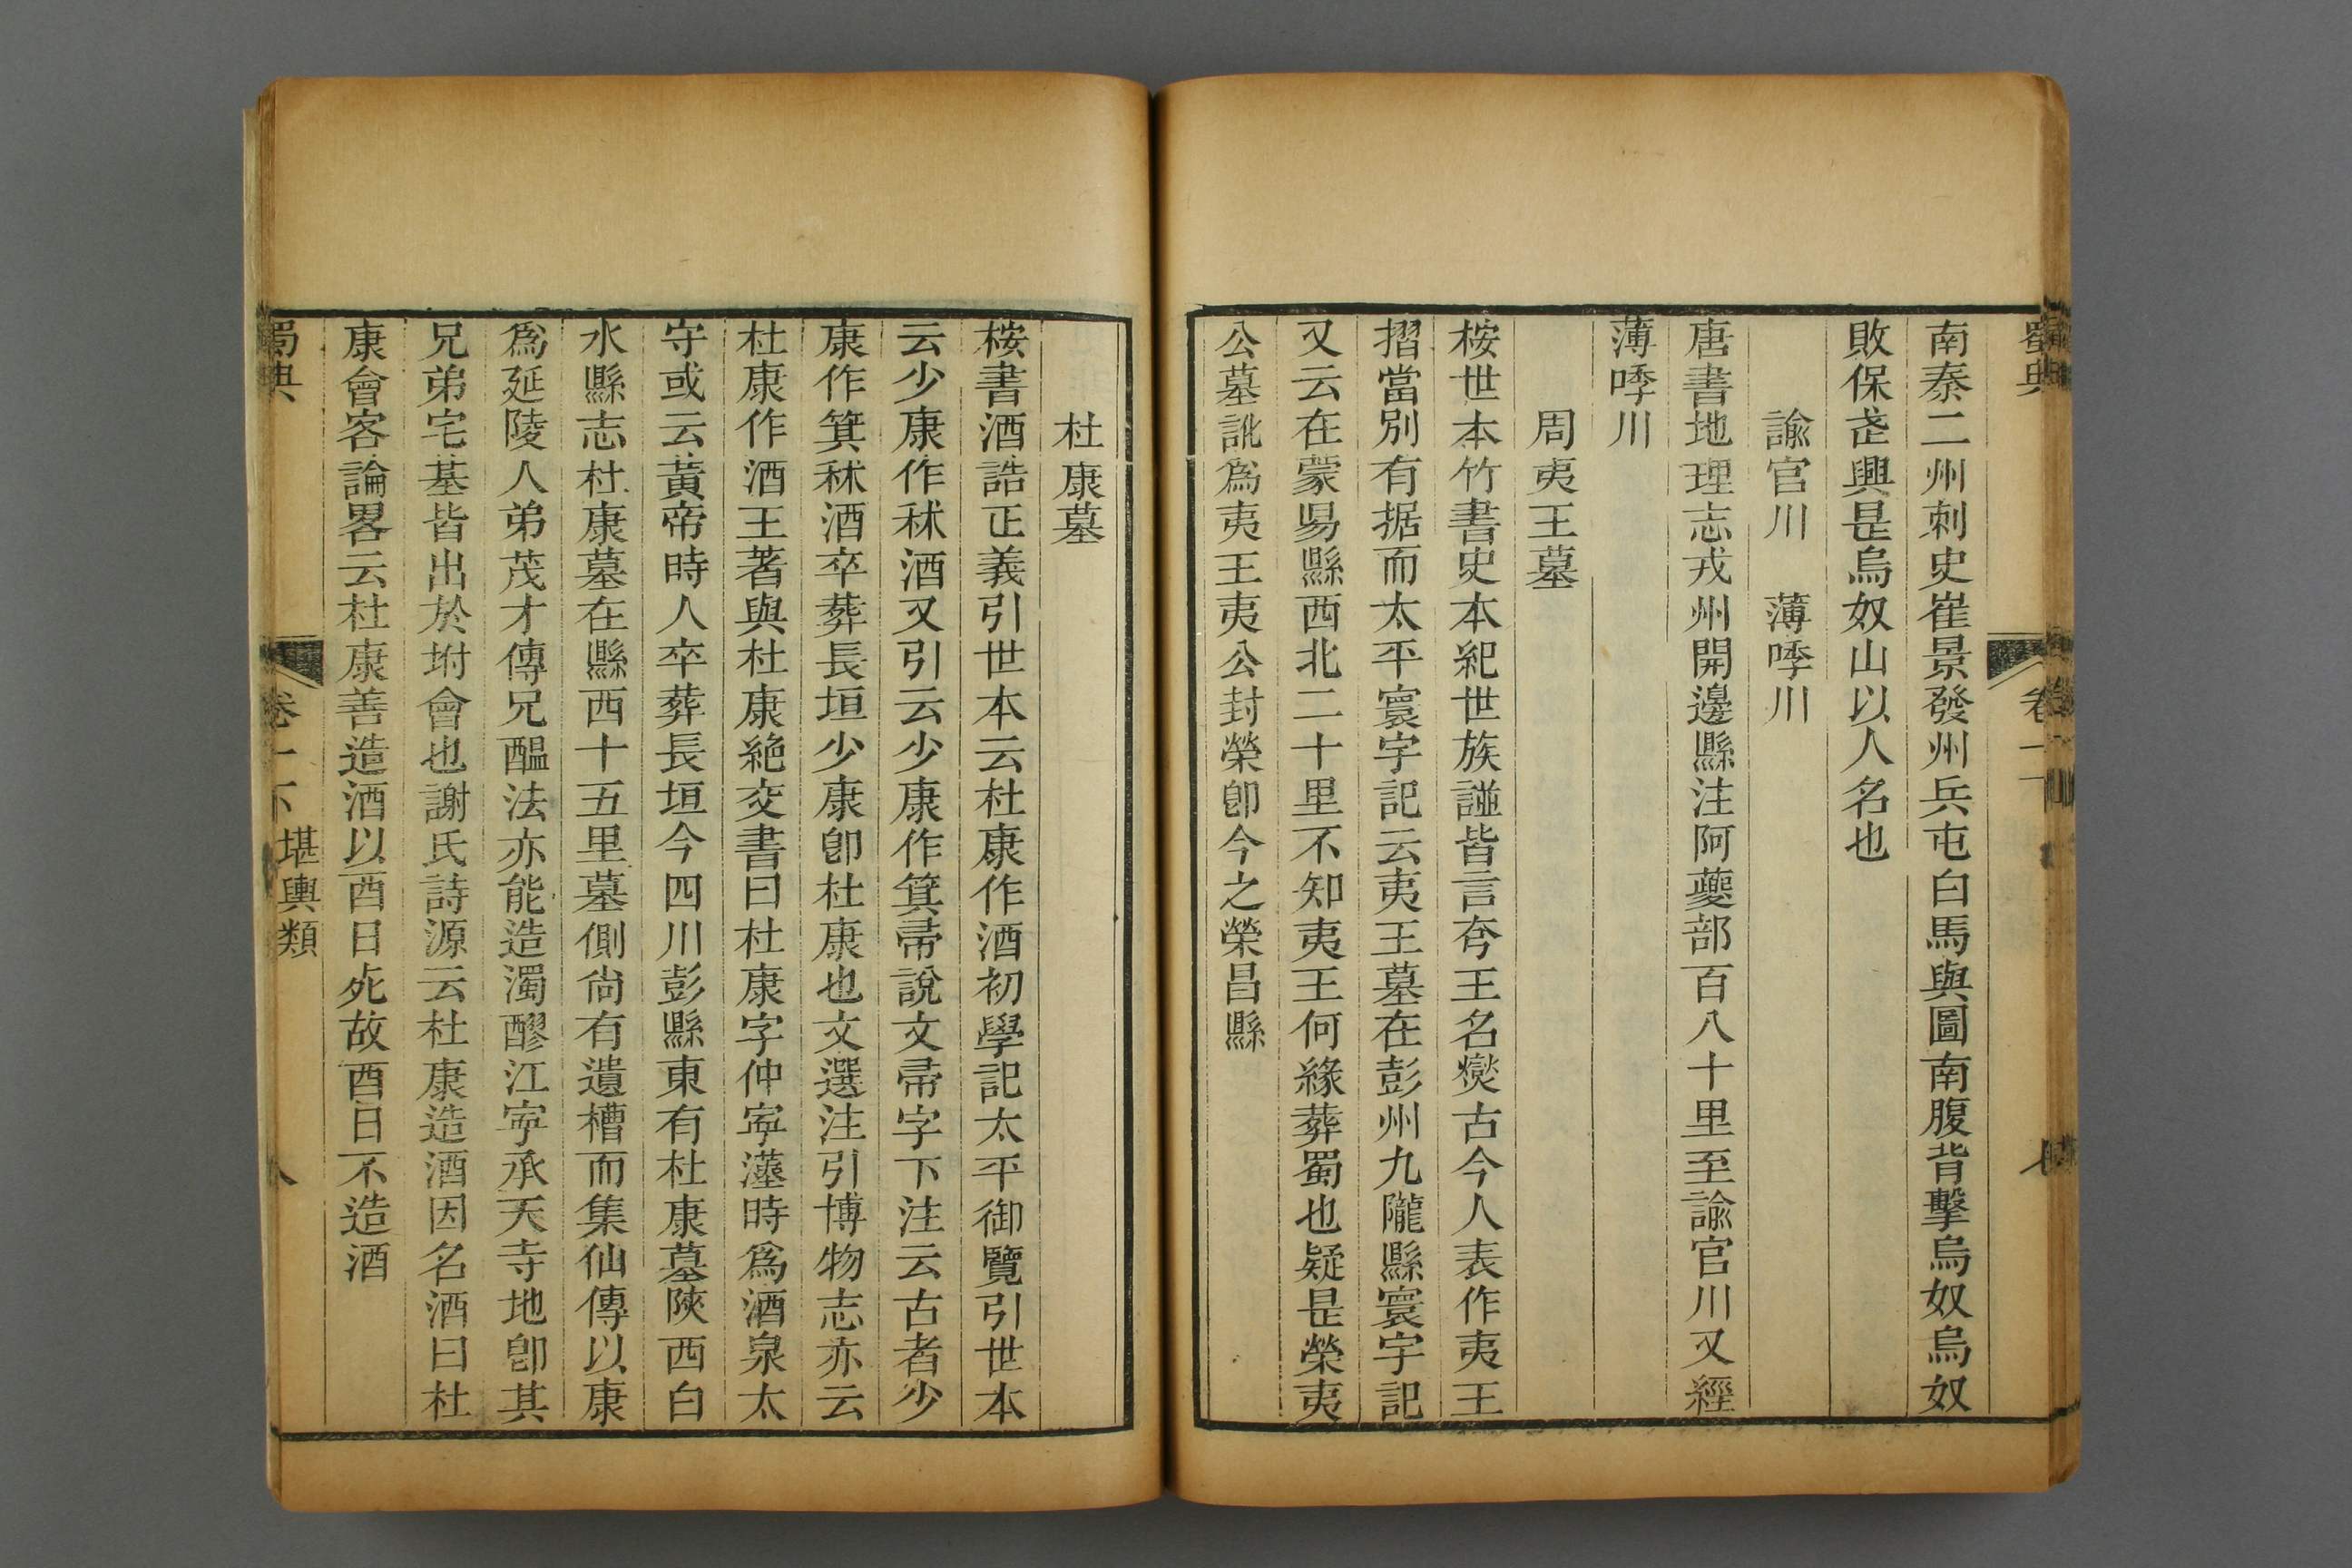 蜀典
卷一下
南秦二州刺史崔景發州兵屯白馬與圖南腹背擊烏奴烏奴
敗保𢓊興昰烏奴山以人名也
諭官川　薄哼川
唐書地理志戎州開邊縣注阿夔部百八十里至諭官川又經
薄哼川
周夷王墓
桉世本竹書史本紀世族譜皆言夸王名燮古今人表作夷王
摺當別有据而太平寰宇記云夷王墓在彭州九隴縣寰宇記
又云在蒙昜縣西北二十里不知夷王何緣葬蜀也疑昰榮夷
公墓訛爲夷王夷公封榮卽今之榮昌縣
杜康墓
桉書酒誥正義引世本云杜康作酒初學記太平御覽引世本
云少康作秫酒又引云少康作箕帚說文帚字下注云古者少
康作箕秫酒卒葬長垣少康卽杜康也文選注引博物志亦云
杜康作酒王著與杜康絶交書曰杜康字仲寧漢時爲酒泉太
守或云黃帝時人卒葬長垣今四川彭縣東有杜康墓陝西白
水縣志杜康墓在縣西十五里墓側尙有遺槽而集仙傳以康
爲延陵人弟茂才傳兄醞法亦能造濁醪江寧承天寺地卽其
兄弟宅基皆出於坿會也謝氏詩源云杜康造酒因名酒曰杜
康會客論畧云杜康善造酒以酉日死故酉日不造酒
蜀典
卷一下
堪輿類
八